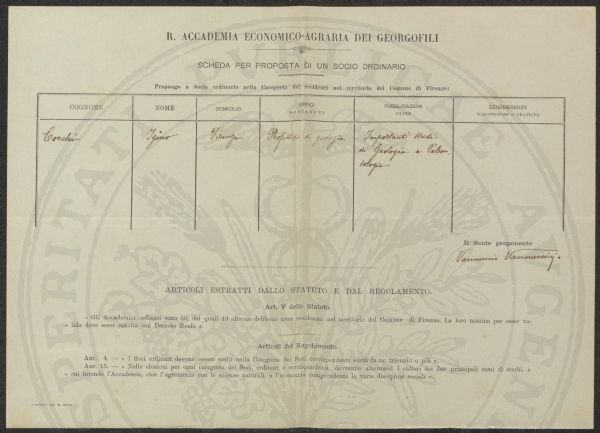 R. ACCADEMIA ECONOMICO-AGRARIA DEI GEORGOFILI
SCHEDA PER PROPOSTA DI UN SOCIO ORDINARIO
Propongo a Socio ordinario nella Categoria dei residenti nel territorio del Comune di Firenze:
COGNOME
NOME
DOMICILIO
UFFICI
SOSTENUTI
PUBBLICAZIONI
FATTE
BENEMERENZE
SCIENTIFICHE O PRATICHE
Cocchi
Igino
Firenze
Professore di geologia
Importanti studi
di Geologia e Paleon
tologia
Il Socio proponente
Vannuccio Vannuccini
ARTICOLI ESTRATTI DALLO STATUTO E DAL REGOLAMENTO.
Art. V dello Statuto.
« Gli Accademici ordinari sono 50, dei quali 40 almeno debbono aver residenza nel territorio del Comune di Firenze. La loro nomina per esser va-
« lida deve esser sancita con Decreto Reale ».
Articoli del Regolamento.
ART. 4. — « I Soci ordinari devono essere scelti nella Categoria dei Soci corrispondenti eletti da un triennio o più ».
ART. 15. — « Nelle elezioni per ogni categoria dei Soci, ordinari e corrispondenti, dovranno alternarsi i cultori dei due principali rami di studii, a
« cui intende l'Accademia, cioè l'agronomia con le scienze naturali e l'economia comprendente le varie discipline sociali ».